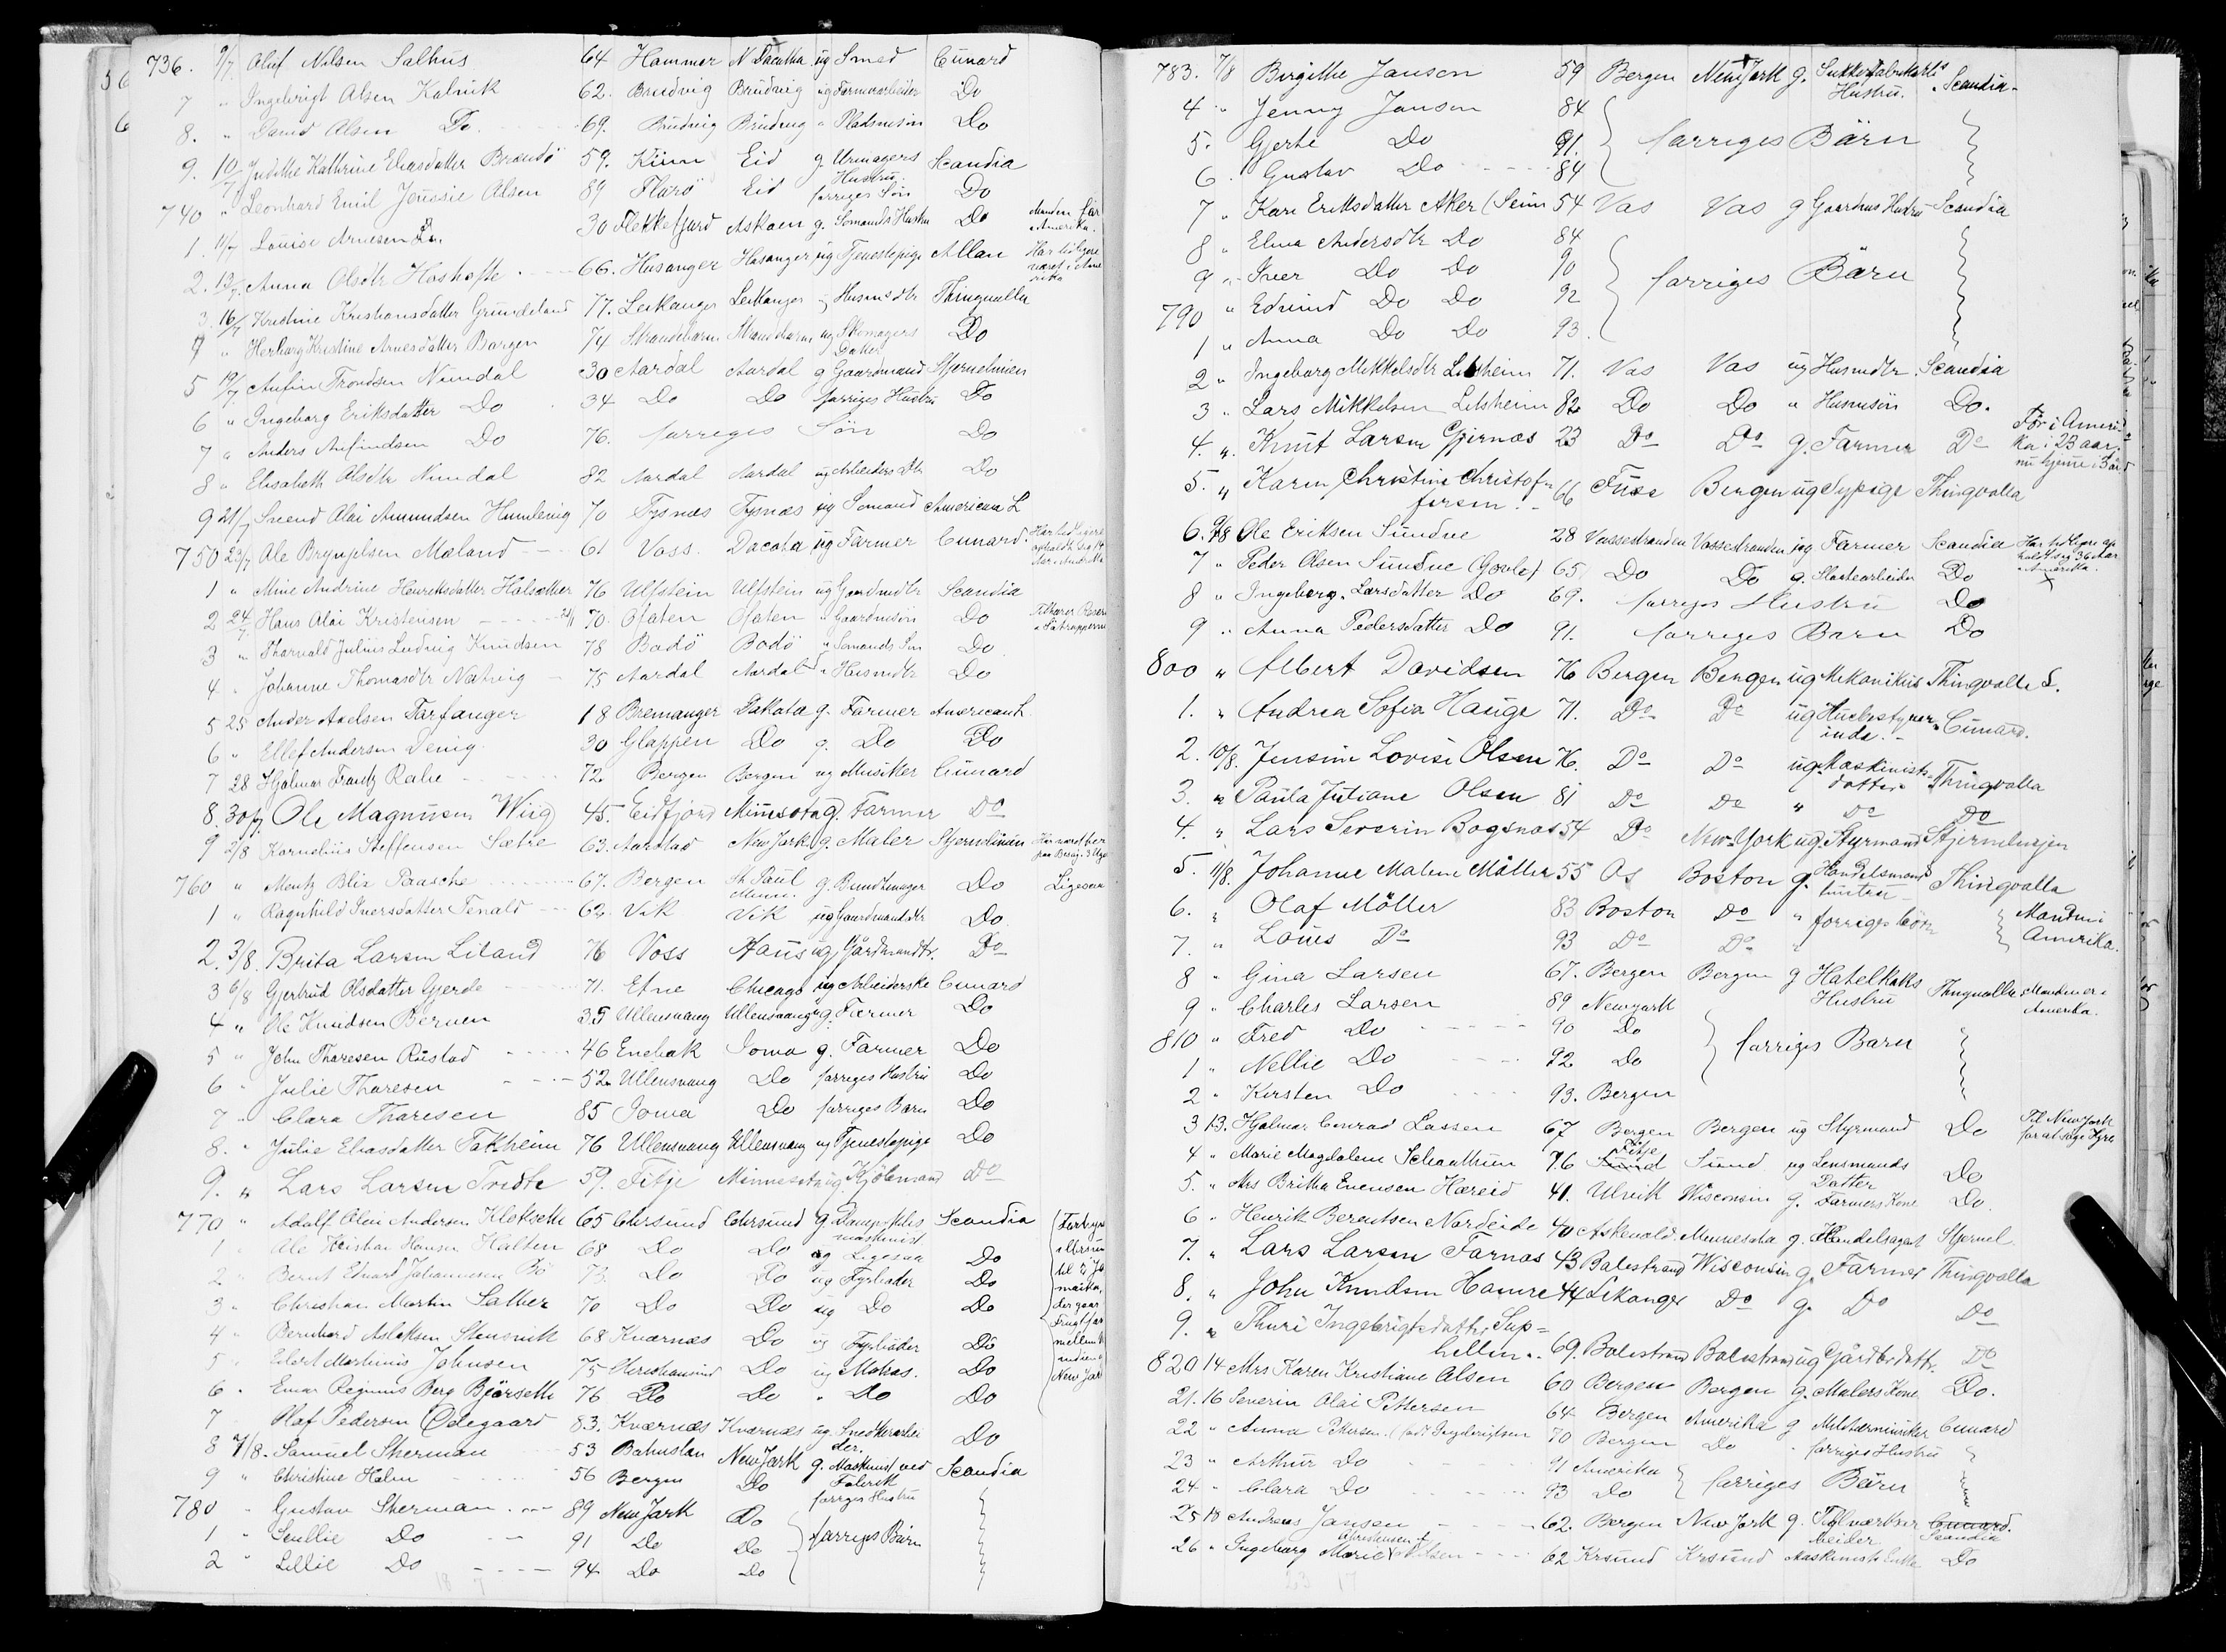 736. 9/7 Oluf Nilsen Salhus 64 Hammer N Dacotha ug Smed Cunard
7 " Ingebrigt Olsen Kalvik 62. Brudvig Brudvig ug Farmarbeider Do
8. " David Olsen Do. 69. Brudvig Brudvig " Pladsmsön Do
9. 10/7 Judithe Kathrine Eliasdatter Brandö 59. Kinn Eid g Urmagers Hustru. Scandia
740 " Leonhard Emil Jenssie Olsen 89 Florö Eid forriges Sön Do
1. 11/7 Louise Arnesen 30 Flekkefjord Askoen g. Sömands Hustru Do Manden för i Amerika.
2. 13/7. Anna Olsdtr 66. Hosanger Hosanger ug Tjenestepige Allan Har tidligere været i Ame rika
3. 16/7 Kristine Kristiansdatter Grundeland 77. Leikanger Leikanger " Husmsdtr Thingvalla
4 " Herborg Kristine Arnesdatter Bergen 74 Strandebarm Strandebarm ug Skomagers Datter Do
5 19/7. Anfin Trondsen Nundal 30 Aardal Aardal g Gaardmand Stjernelinien
6 " Ingeborg Eriksdatter Do 34 Do Do forriges Hustru Do
7 " Anders Anfindsen Do 76. forriges Sön Do
8 " Elisabeth Olsdtr Nundal 82 Aardal Aardal ug Arbeiders Dtr Do
9 21/7 Svend Olai Amundsen Humlevig 70 Tysnæs Tysnæs ug Sömand American L
750 22/7 Ole Brynjulsen Mæland 61 Voss. Dacota ug Farmer Cunard. Har tidligere opholdt sig 14 Aar i Amerika
1 " Mine Andrine Henriksdatter Halsæther 76 Ulfstein Ulfstein ug Gaardmdtr Scandia
2 24/7 Hans Olai Kristensen 70. Ofoten Ofoten " Gaardmsön Do Tilhører Reserv
3 " Thorvald Julius Ludvig Knudsen 78 Bodö Bodö " Sömands Sön Do
4 " Johanne Thomasdtr Natvig 75 Aardal Aardal " Husmdtr Do
5 25 Ander Axelsen Torfanger 18 Bremanger Dakota g. Farmer American L.
6 " Ellef Andersen Denig. 30 Glappen Do g. Do Do
7 28 Hjalmar Frantz Rahe 72. Bergen Bergen ug Musiker Cunard
8. 30/7. Ole Magnusen Wiig 45. Eidfjord Minnesota g. Farmer Do
9 2/8 Kornelius Steffensen Sætre 63. Aarstad New Jork g. Maler Stjernelinien Har været her paa Besøg i 3 Uger
760 " Mentz Blix Paasche 67. Bergen St. Paul Minn. g. Bundtmager Do Ligesaa
1 " Ragnhild Iversdatter Tenald 62. Vik Vik ug Gaardmandsdtr Do
2. 3/8. Brita Larsen Liland 76 Voss Haus ug Gårdmandtr. Do
3 6/8 Gjertrud Olsdatter Gjerde 71. Etne Chicago ug Arbeiderske Cunard
4 " Ole Knudsen Bernen 35 Ullensvang Ullensvang g. Farmer Do
5 " John Thoresen Rustad 46 Enebak Iowa g. Farmer Do
6 " Julie Thoresen 52. Ullensvang Do forriges Hustru Do
7 " Clara Thoresen 85 Iowa Do forriges Barn Do
8. " Julie Eliasdatter Takheim 76 Ullensvang Ullensvang ug Tjenestepige Do
9. " Lars Larsen Tvedte 59. Fitje Minnesota ug Kjöbmand Do
770 " Adolf Olai Andersen Kloksetti 65 Chrsund Chrsund g. Dampskibs maskinist Scandia
1 " Ole Kristian Hansen Halten 68 Do Do ug Ligesaa Do
2 " Bernt Edvard Johannesen Bö 73. Do Do ug Fyrböder Do
3 " Christian Martin Sather 70 Do Do ug Do Do
4 " Bernhard Aslaksen Stensvik 68 Kværnæs Do ug Fyrböder Do
5 " Edert Martinus Johnsen 75 Kristiansund Do ug Matros. Do
6 " Einar Reginius Berg Björseth 76 Do Do " Do Do
7 " Olaf Pedersen Ödegaard 83. Kværnæs Kværnæs ug. Snedkerarbei der. Do
8 7/8. Samuel Sherman 53 Bahuslan New Jork g. Maskinist ved Fabrik Scandia
9 " Christine Holm 56 Bergen Do forriges Hustru
780 " Gustav Sherman 89 New Jork Do
1 " Do 91 Do Do forriges Börn
2 " Lillie Do 94 Do Do
783. 7/8 Birgithe Janson 59 Bergen New Jork g. Hustru. Scandia
4 " Jenny Janson 84
5. Gjerte Do 91. forriges Börn
6. Gustav Do 84
7 " Kari Eriksdatter Aker (Seim 54 Vos Vos g Gaardms Hustru Scandia
8 " Elina Andersdtr Do 84
9 " Iver Do Do 90 forriges Börn
790 " Edvind Do Do 92
1 " Anna Do Do 93.
2 " Ingeborg Mikkelsdtr Lidsheim 71. Vos Vos ug Husmdtr. Scandia
3 " Lars Mikkelsen Lidsheim 82 Do Do " Husmsön Do.
4. " Knut Larsen Gjernæs 23 Do Do g. Farmer Do För i Ameri- ka i 23 aar. nu hjeme i 3 år
5. " Karen Christine Christof- fersen. 66 Fuse Bergen ug Sypige Thingvalla
6. 9/8 Ole Eriksen Sundve 28 Vossestranden Vossestranden ug Farmer Scandia Har tidligere op holdt sig 36 Aar i Amerika.
7 " Peder Olsen Sundve (Gavle) 65. Do Do g. Do
8 " Ingeborg Larsdatter Do 69. forriges Hustru Do
9 " Anna Pedersdatter Do 91. forriges Barn Do
800 " Albert Davidsen 76 Bergen Bergen ug Mekanikus Thingvalla L.
1. " Andrea Sofia Hauge 71. Do Do ug Husbestyrer- inde. Cunard.
2. 10/8. Jensine Lovise Olsen 76. Do Do ug. Maskinists datter Thingvalla
3. " Paula Juliane Olsen 81 Do Do " Do Do
4. " Lars Severin Bogsnæs 54 Do New-York ug. Styrmand Stjernelinjen
5. 11/8. Johanne Malene Möller 55 Os Boston g. Handelsmands hustru Thingvalla
6. " Olaf Möller 83 Boston Do " forriges börn Manden i
7. " Louis Do 93 Do Do " Amerika.
8 " Gina Larsen 67. Bergen Bergen g Hotelkoks Hustru Thingvalla Manden er i Amerika.
9 " Charles Larsen 89 Newyork
810 " Fred Do 90 Do forriges Barn
1 " Nellie Do 92 Do
2 " Kirsten Do 93. Bergen
3 13. Hjalmar Conrad Lassen 67 Bergen Bergen ug Styrmand Do Til New Jork for at søge Hyre
4 " Marie Magdalene Schanthrun 76 Fitje Sund Sund ug Lensmands Datter Do
5. " Mrs Britha Evensen Hæreid 41. Ulvik Wisconsin g. Farmers Kone Do.
6 " Henrik Berentsen Nordeide 40 Askevold. Minnesota g. Handelsagent Stjernel.
7. " Lars Larsen Farnæs 43 Balestrand Wisconsin g. Farmer Thingvalla
8. " John Knudsen Hamre 44 Lekanger Do g. Do Do
9. " Thuri Ingebrigtsdatter Sup- hellen. 69. Balestrand Balestrand ug Gårdbrdattr. Do
820 14 Mrs Karen Kristiane Olsen 60 Bergen Bergen g. Malers Kone Do.
21. 16 Severin Olai Pettersen 64 Bergen Amerika g Militærmusiker Cunard
22 " Anna Pettersen (född Ingebrigtsen 70 Bergen Do forriges Hustru
23 " Arthur Do 91 Amerika forriges Börn
24 " Clara Do 93 Do
25 18 Andreas Jansen 62. Bergen New Jork g. beider Cunard. Scandia
26 " Ingeborg Marie Christensen Nilsen 62 Krsund Krsund Maskinist Enke Do